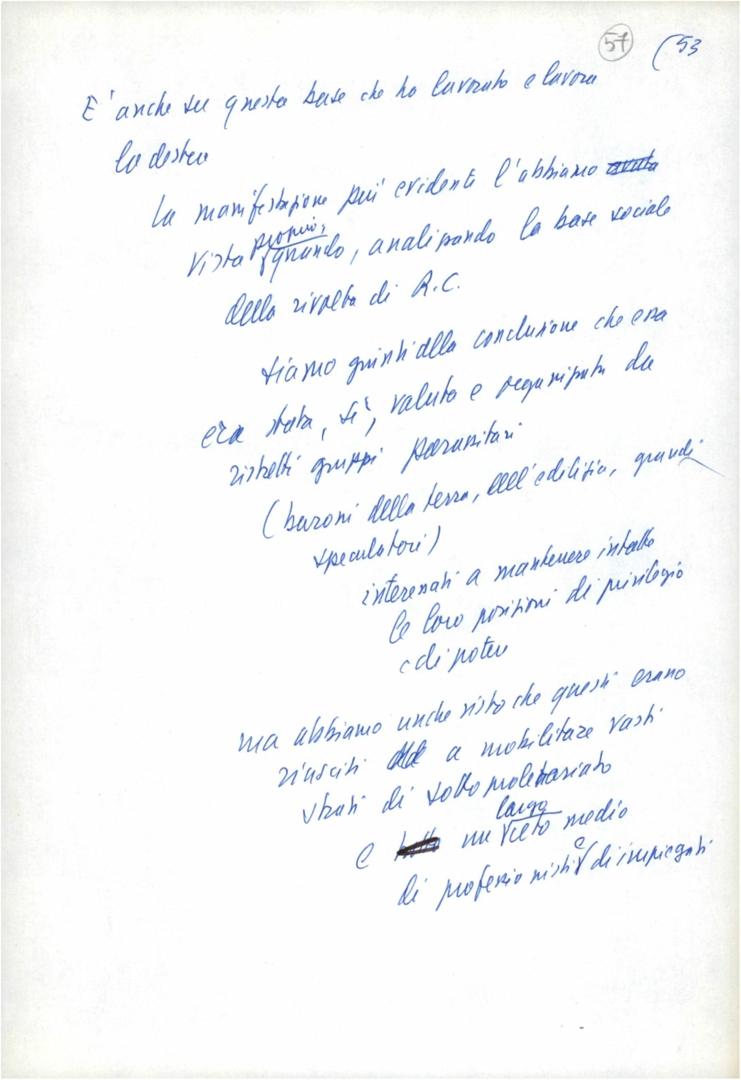 57 (53
E' anche su questa base che ha lavorato e lavora
la destra
La manifestazione più evidente l'abbiamo avuta
proprio,
vista quando, analizzando la base sociale
della rivolta di R.C.
siamo giunti alla conclusione che essa
era stata, sì, voluta e organizzata da
ristretti gruppi parassitari
(baroni della terra, dell'edilizia, grandi
speculatori)
interessati a mantenere intatte
le loro posizioni di privilegio
e di potere
ma abbiamo anche visto che questi erano
riusciti a mobilitare vasti
strati di sottoproletariato
largo
e un ceto medio
di professionisti e di impiegati